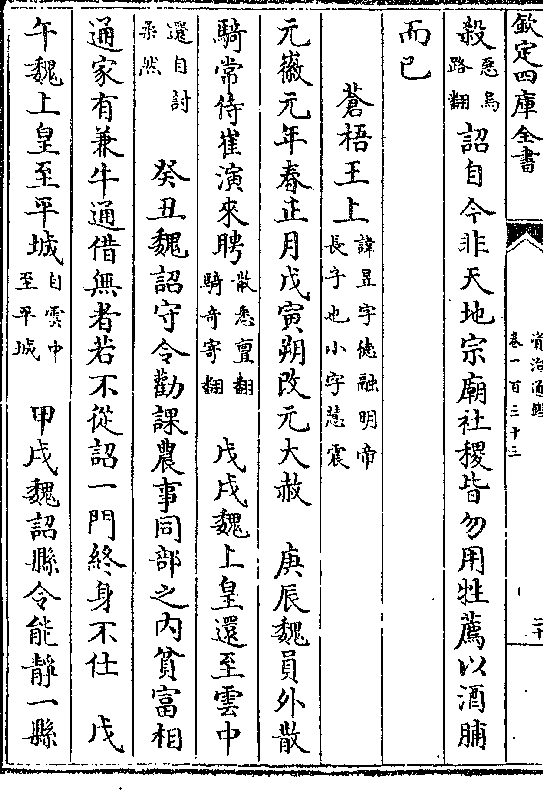 欽定四庫全書
資治通鑑
卷一百三十三
二十
殺惡烏路翻詔自今非天地宗廟社稷皆勿用牲薦以酒脯
而已
蒼梧王上諱昱字德融明帝長子也小字慧震
元徽元年春正月戊寅朔改元大赦　庚辰魏員外散
騎常侍崔演來聘散悉亶翻騎奇寄翻　戊戌魏上皇還至雲中
還自討柔然　癸丑魏詔守令勸課農事同部之內貧富相
通家有兼牛通借無者若不從詔一門終身不仕　戊
午魏上皇至平城自雲中至平城　甲戌魏詔縣令能靜一縣